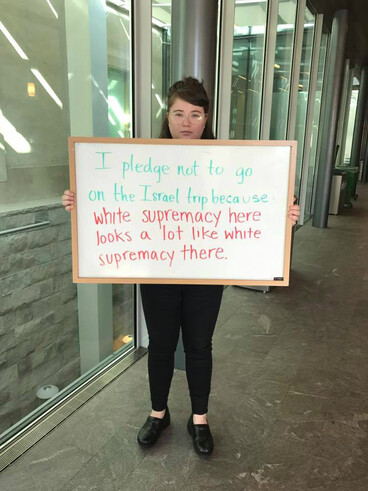 I pledge not to go
on the Israel trip because
white supremacy here
looks a lot like white
supremacy there.